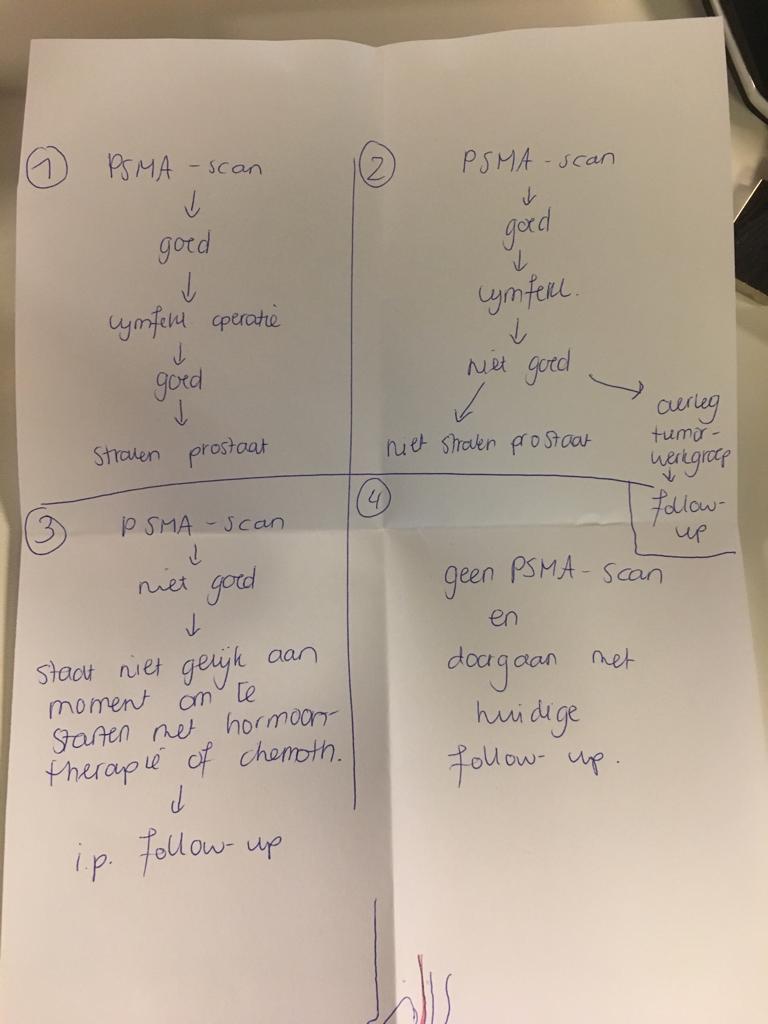 1 PSMA - scan
↓
goed
↓
Lymfekl operatie
↓
goed
↓
Stralen prostaat
2 PSMA - scan
↓
goed
↓
Lymfekl.
↓
niet goed
niet stralen prostaat
overleg
tumor-
werkgroep
↓
follow-
up
3 PSMA - scan
↓
niet goed
↓
staat niet gelijk aan
moment om te
starten met hormoon-
therapie of chemoth.
↓
i.p. follow-up
4
geen PSMA - scan
en
doorgaan met
huidige
follow- up.